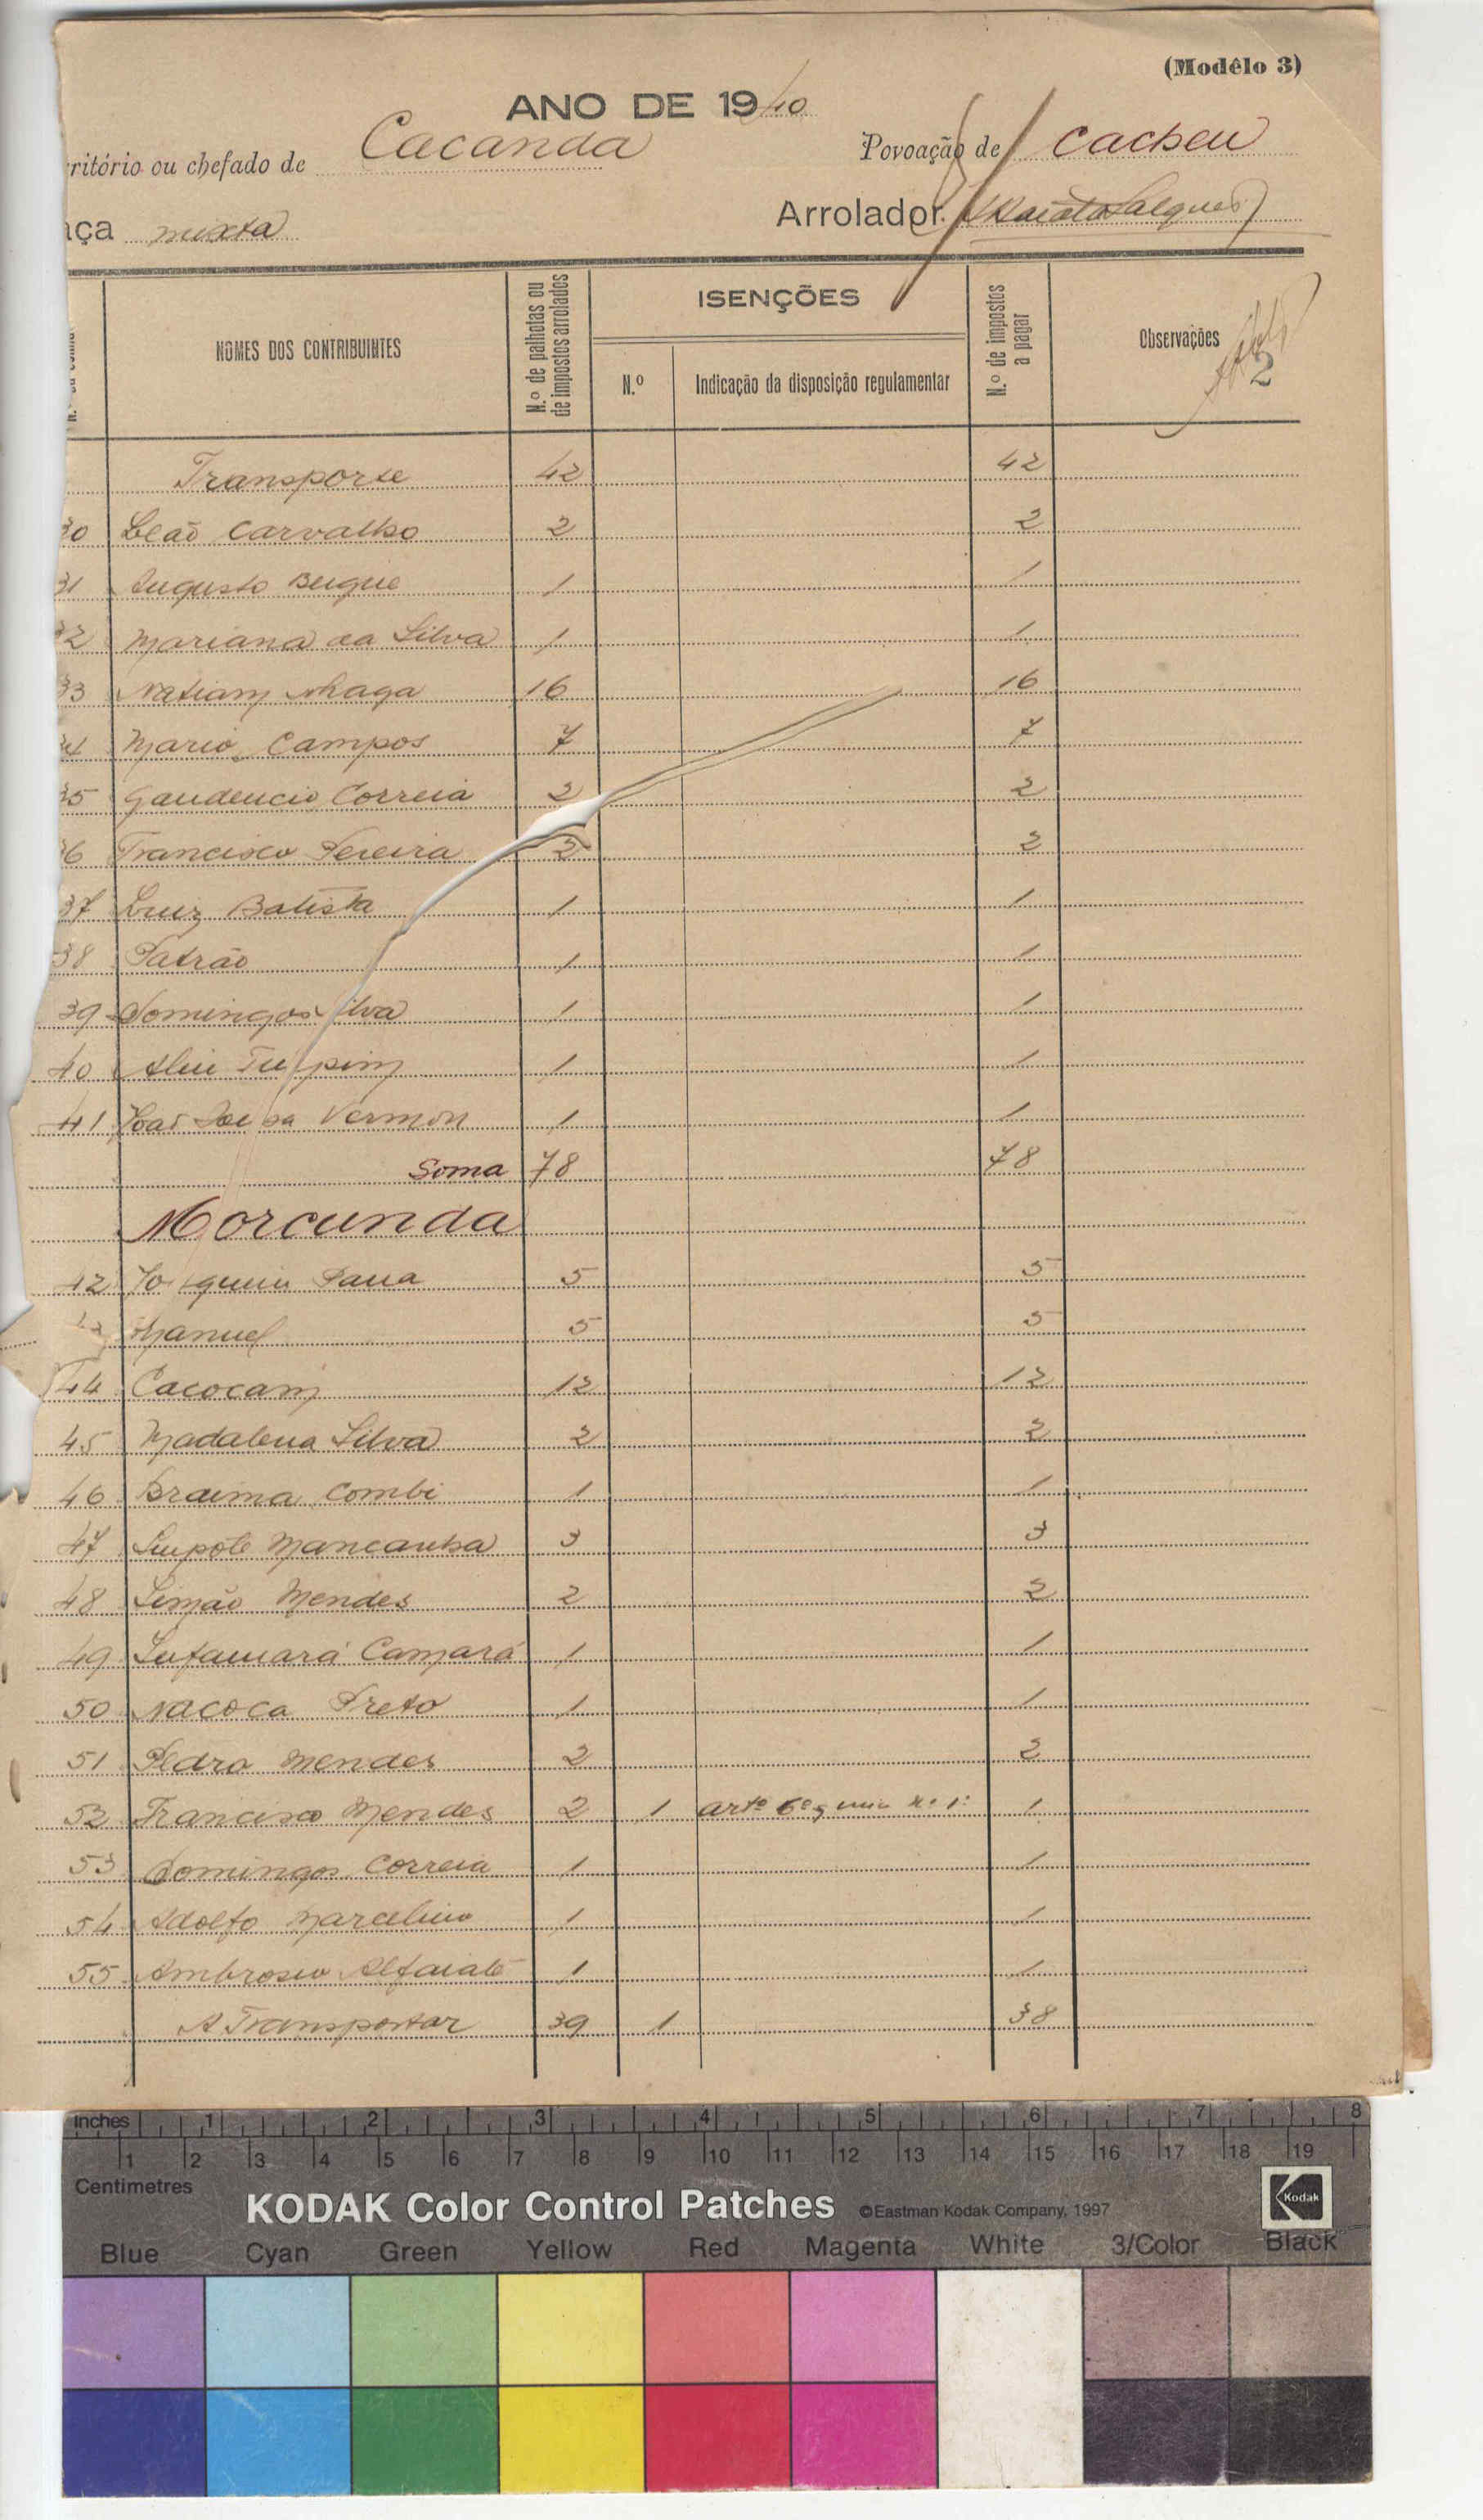 (Modêlo 3)
ANO DE 1940
ritório ou chefado de Cacanda Povoação de Cacheu
aça mixta Arrolador
NOMES DOS CONTRIBUINTES N.º de palhotas ou de impostos arrolados ISENÇÕES N.º Indicação da disposição regulamentar N.º de impostos a pagar Observações
2
Transporte 42 42
30 Leão Carvalho 2 2
31 Augusto 1 1
32 Mariana da Silva 1 1
33 16 16
34 Mario Campos 7 7
35 Gaudencio Correia 2 2
36 Francisco Pereira 2 2
37 Luiz Batista 1 1
38 Patrão 1 1
39 Domingos Silva 1 1
40 1 1
41 1 1
Soma 78 78
Morcunda
42 Joaquim 5 5
43 Manuel 5 5
44 Cacocam 12 12
45 Madalena Silva 2 2
46 Braima Combi 1 1
47 Mancanha 3 3
48 Simão Mendes 2 2
49 Camará 1 1
50 Nacoca Preto 1 1
51 Pedro Mendes 2 2
52 Francisco Mendes 2 1 artº 6º nº 1º 1
53 Domingos Correia 1 1
54 Adolfo Marcelino 1 1
55 Ambrosio Alfaiate 1 1
A Transportar 39 1 38
inches 1 2 3 4 5 6 7 8
1 2 3 4 5 6 7 8 9 10 11 12 13 14 15 16 17 18 19
Centimetres
KODAK Color Control Patches ©Eastman Kodak Company, 1997 Kodak
Blue Cyan Green Yellow Red Magenta White 3/Color Black